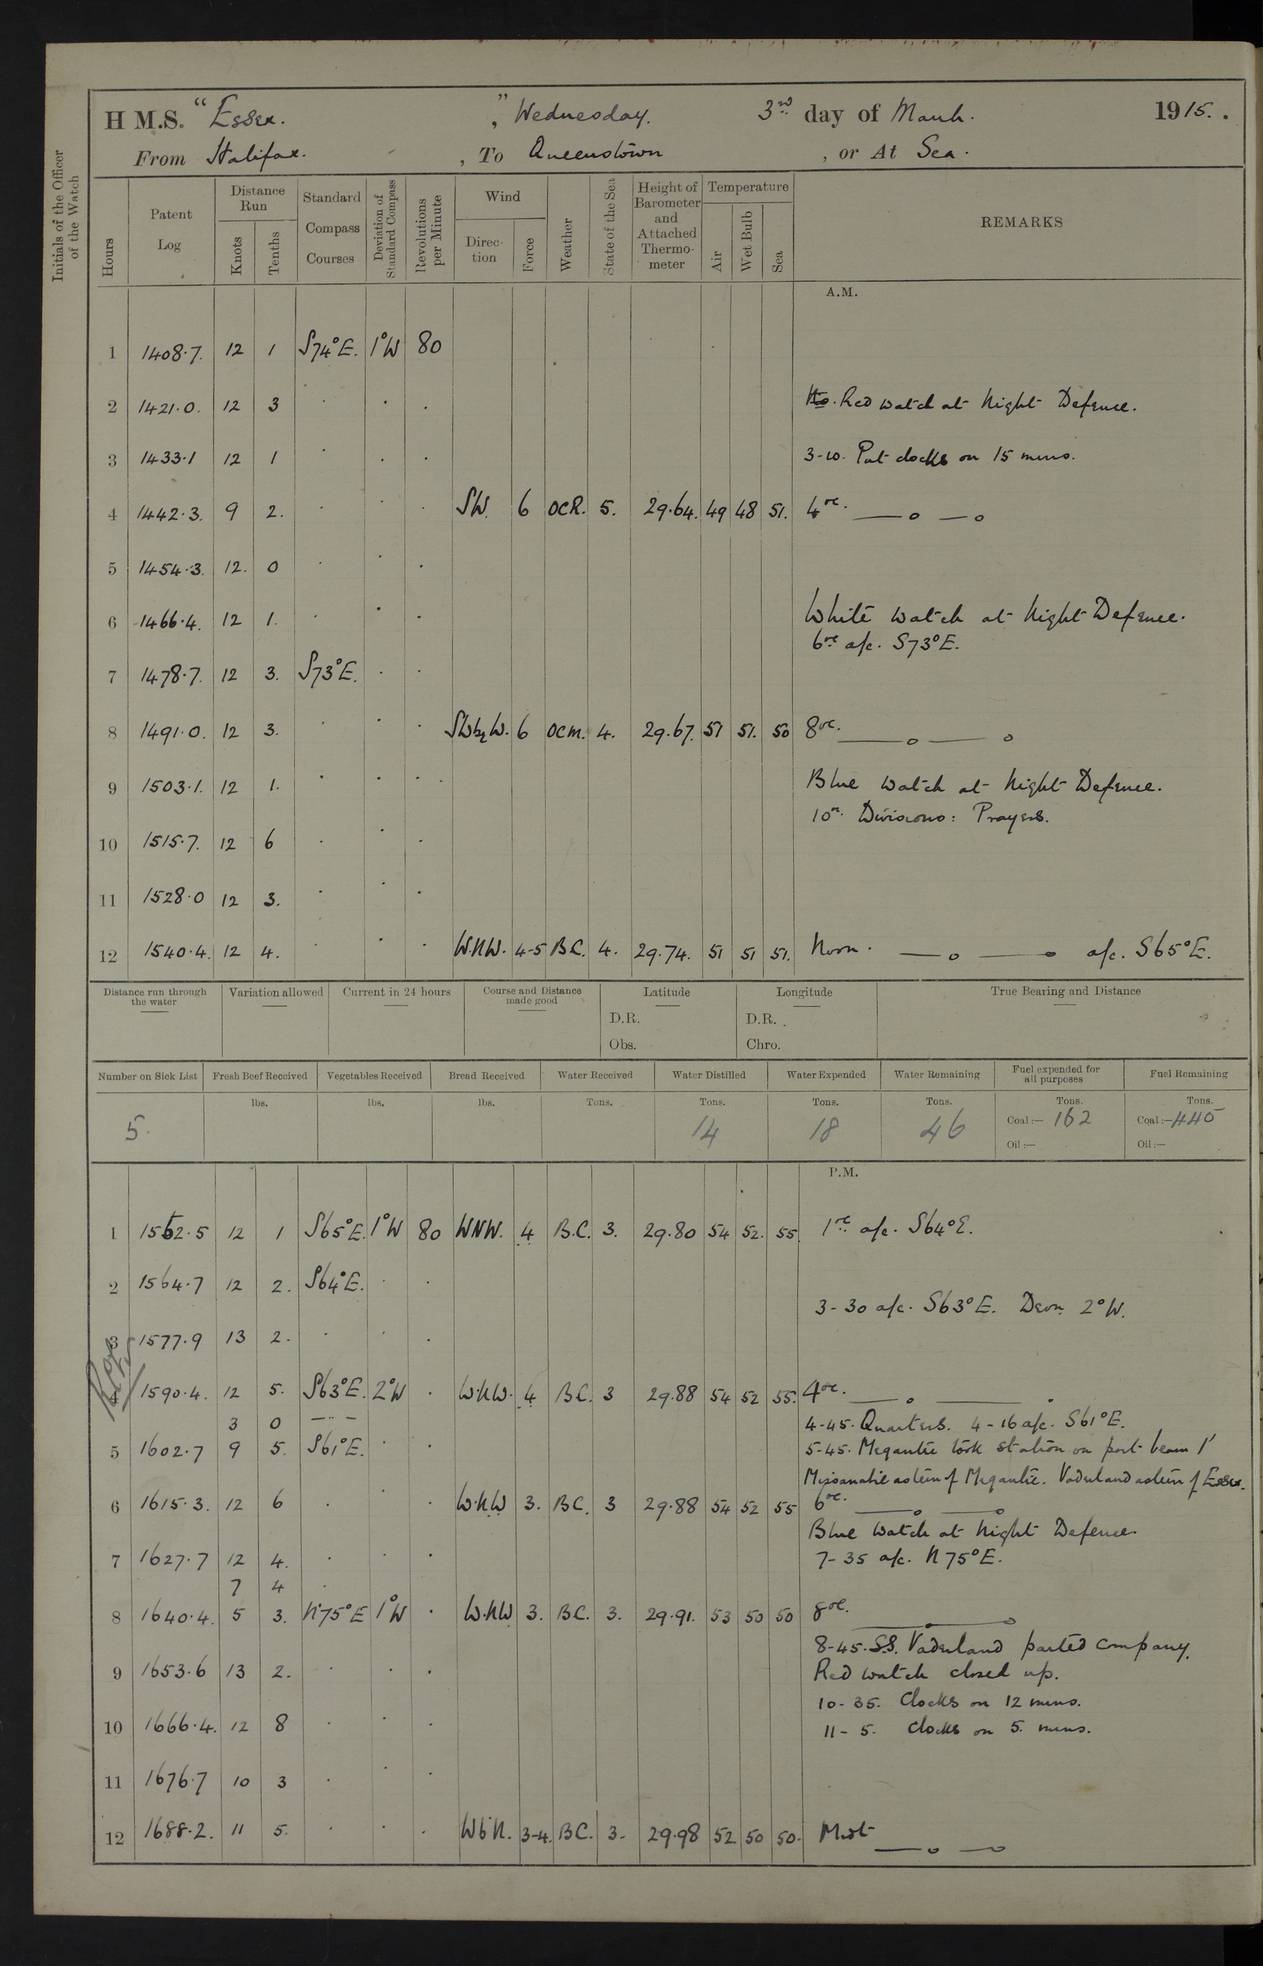 H M.S. "Essex.", Wednesday. 3rd day of March. 1915.
From Halifax. , To Queenstown , or At Sea.
Initials of the Officer of the Watch
Hours Patent Log Distance Run Knots Tenths Standard Compass Courses Deviation of Standard Compass Revolutions per Minute Wind Direc-tion Force Weather State of the Sea Height of Barometer and Attached Thermo-meter Temperature Air Wet Bulb Sea REMARKS
A.M.
1 1408.7. 12 1 S74°E. 1°W 80
2 1421.0. 12 3 . . . Red watch at Night Defence.
3 1433.1 12 1 . . . 3-10. Put clocks on 15 mins.
4 1442.3. 9 2. . . . SW. 6 OCR. 5. 29.64. 49 48 51. 4oc. —o —o
5 1454.3. 12. 0 . . .
6 1466.4. 12 1. . . . White watch at Night Defence.
6oc a/c. S73°E.
7 1478.7. 12 3. S73°E. . .
8 1491.0. 12 3. . . . SWbyW. 6 OCM. 4. 29.67. 51 51. 50 8oc. —o —o
9 1503.1. 12 1. . . . Blue watch at Night Defence.
10oc. Divisions: Prayers.
10 1515.7. 12 6 . . .
11 1528.0 12 3. . . .
12 1540.4. 12 4. . . . W.N.W. 4-5 B.C. 4. 29.74. 51 51 51. Noon. —o —o a/c. S65°E.
Distance run through the water Variation allowed Current in 24 hours Course and Distance made good Latitude Longitude True Bearing and Distance
D.R. D.R.
Obs. Chro.
Number on Sick List Fresh Beef Received Vegetables Received Bread Received Water Received Water Distilled Water Expended Water Remaining Fuel expended for all purposes Fuel Remaining
lbs. lbs. lbs. Tons. Tons. Tons. Tons. Tons. Tons.
5. 14 18 46 Coal:— 162 Coal:— 445
Oil:— Oil:—
P.M.
1 1552.5 12 1 S65°E. 1°W 80 WNW. 4 B.C. 3. 29.80 54 52. 55. 1oc a/c. S64°E.
2 1564.7 12 2. S64°E. . .
3-30 a/c. S63°E. Devn 2°W.
3 1577.9 13 2. . . .
4 1590.4. 12 5. S63°E. 2°W . W.N.W. 4 B.C. 3 29.88 54 52 55. 4oc. —o —.
3 0 — — 4-45. Quarters. 4-16 a/c. S61°E.
5 1602.7 9 5. S61°E. . . 5-45. Megantic took station on port beam 1'
Missanabie astern of Megantic. Vaderland astern of Essex.
6 1615.3. 12 6 . . . W.N.W 3. B.C. 3 29.88 54 52 55 6oc. —o —o
Blue Watch at Night Defence.
7 1627.7 12 4. . . . 7-35 a/c. N75°E.
7 4 .
8 1640.4. 5 3. N75°E 1°W . W.N.W 3. B.C. 3. 29.91. 53 50 50 8oc. —. —o
8-45. S.S. Vaderland parted company.
9 1653.6 13 2. . . . Red watch closed up.
10-35. Clocks on 12 mins.
10 1666.4. 12 8 . . . 11-5. Clocks on 5 mins.
11 1676.7 10 3 . . .
12 1688.2. 11 5. . . . W b N. 3-4. B.C. 3. 29.98 52 50 50. Midt —o —o